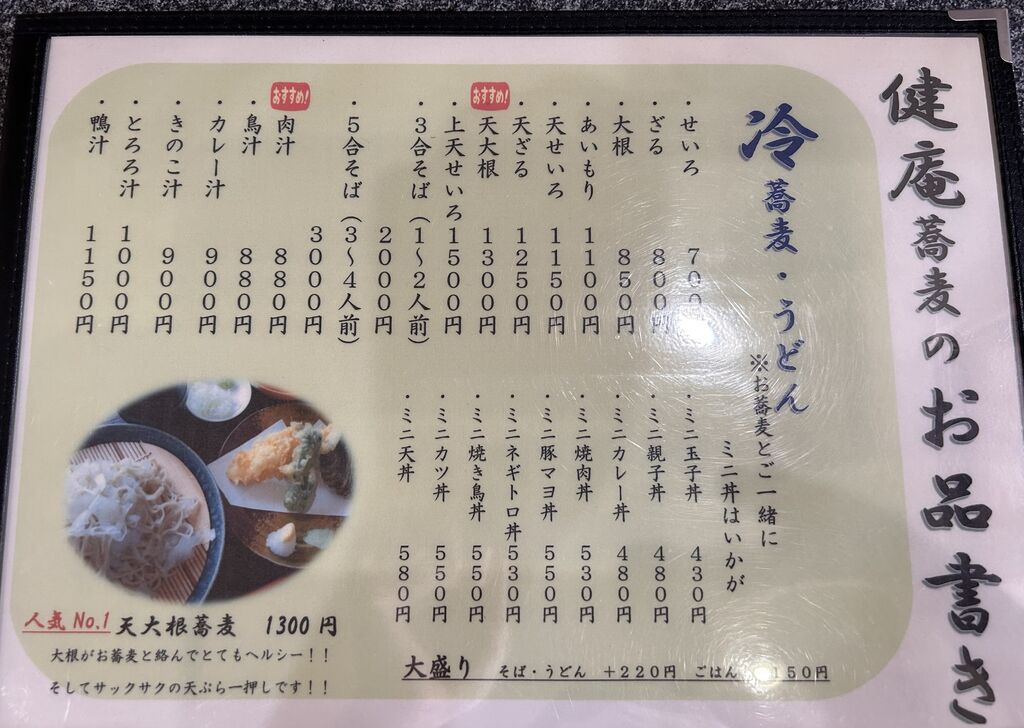 健庵蕎麦のお品書き
冷蕎麦・うどん
・せいろ 700円
・ざる 800円
・大根 850円
・あいもり 1100円
・天せいろ 1150円
・天ざる 1250円
おすすめ!
・天大根 1300円
・上天せいろ 1500円
・3合そば(1〜2人前)
2000円
・5合そば(3〜4人前)
3000円
おすすめ!
肉汁 880円
・鳥汁 880円
・カレー汁 900円
・きのこ汁 900円
・とろろ汁 1000円
・鴨汁 1150円
※お蕎麦とご一緒に
ミニ丼はいかが
・ミニ玉子丼 430円
・ミニ親子丼 480円
・ミニカレー丼 480円
・ミニ焼肉丼 530円
・ミニ豚マヨ丼 550円
・ミニネギトロ丼 530円
・ミニ焼き鳥丼 550円
・ミニカツ丼 550円
・ミニ天丼 580円
大盛り そば・うどん +220円 ごはん 150円
人気 No.1 天大根蕎麦 1300円
大根がお蕎麦と絡んでとてもヘルシー!!
そしてサックサクの天ぷら一押しです!!